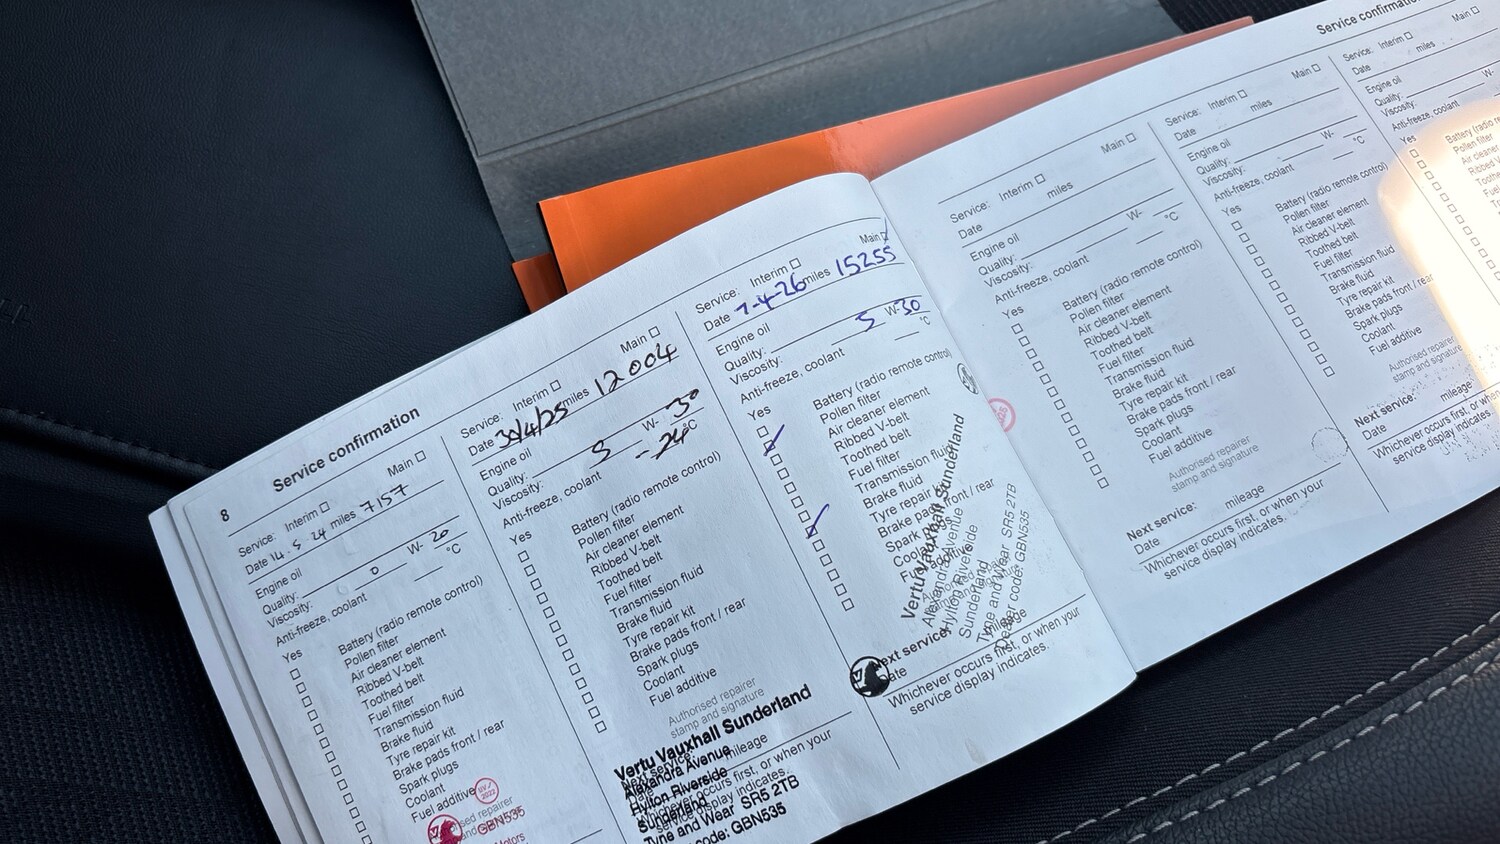 8
Service confirmation
Service: Interim Main
Date 14.5.24 miles 7157
Engine oil
Quality:
Viscosity: 0 W- 20
Anti-freeze, coolant °C
Yes
Battery (radio remote control)
Pollen filter
Air cleaner element
Ribbed V-belt
Toothed belt
Fuel filter
Transmission fluid
Brake fluid
Tyre repair kit
Brake pads front / rear
Spark plugs
Coolant
Fuel additive
GBN535
Service: Interim Main
Date 30/4/25 miles 12004
Engine oil
Quality:
Viscosity: 5 W- 30
Anti-freeze, coolant -24°C
Yes
Battery (radio remote control)
Pollen filter
Air cleaner element
Ribbed V-belt
Toothed belt
Fuel filter
Transmission fluid
Brake fluid
Tyre repair kit
Brake pads front / rear
Spark plugs
Coolant
Fuel additive
Authorised repairer
stamp and signature
Vertu Vauxhall Sunderland
Alexandra Avenue
Hylton Riverside
Sunderland
Tyne and Wear SR5 2TB
code: GBN535
Next service: mileage
Whichever occurs first, or when your
service display indicates.
Service: Interim Main
Date 7-4-26 miles 15255
Engine oil
Quality:
Viscosity: 5 W- 30
Anti-freeze, coolant °C
Yes
Battery (radio remote control)
Pollen filter
Air cleaner element
Ribbed V-belt
Toothed belt
Fuel filter
Transmission fluid
Brake fluid
Tyre repair kit
Brake pads front / rear
Spark plugs
Coolant
Fuel additive
Vertu Vauxhall Sunderland
Alexandra Avenue
Hylton Riverside
Sunderland
Tyne and Wear SR5 2TB
Dealer code: GBN535
Next service: mileage
Date
Whichever occurs first, or when your
service display indicates.
Service: Interim Main
Date miles
Engine oil
Quality:
Viscosity: W-
Anti-freeze, coolant °C
Yes
Battery (radio remote control)
Pollen filter
Air cleaner element
Ribbed V-belt
Toothed belt
Fuel filter
Transmission fluid
Brake fluid
Tyre repair kit
Brake pads front / rear
Spark plugs
Coolant
Fuel additive
Authorised repairer
stamp and signature
Next service: mileage
Date
Whichever occurs first, or when your
service display indicates.
Service: Interim Main
Date miles
Engine oil
Quality:
Viscosity: W-
Anti-freeze, coolant °C
Yes
Battery (radio remote control)
Pollen filter
Air cleaner element
Ribbed V-belt
Toothed belt
Fuel filter
Transmission fluid
Brake fluid
Tyre repair kit
Brake pads front / rear
Spark plugs
Coolant
Fuel additive
Authorised repairer
stamp and signature
Next service: mileage
Date
Whichever occurs first, or when
service display indicates.
Service confirmation
Service: Interim Main
Date miles
Engine oil
Quality:
Viscosity: W-
Anti-freeze, coolant
Yes
Battery (radio
Pollen filter
Air cleaner
Ribbed